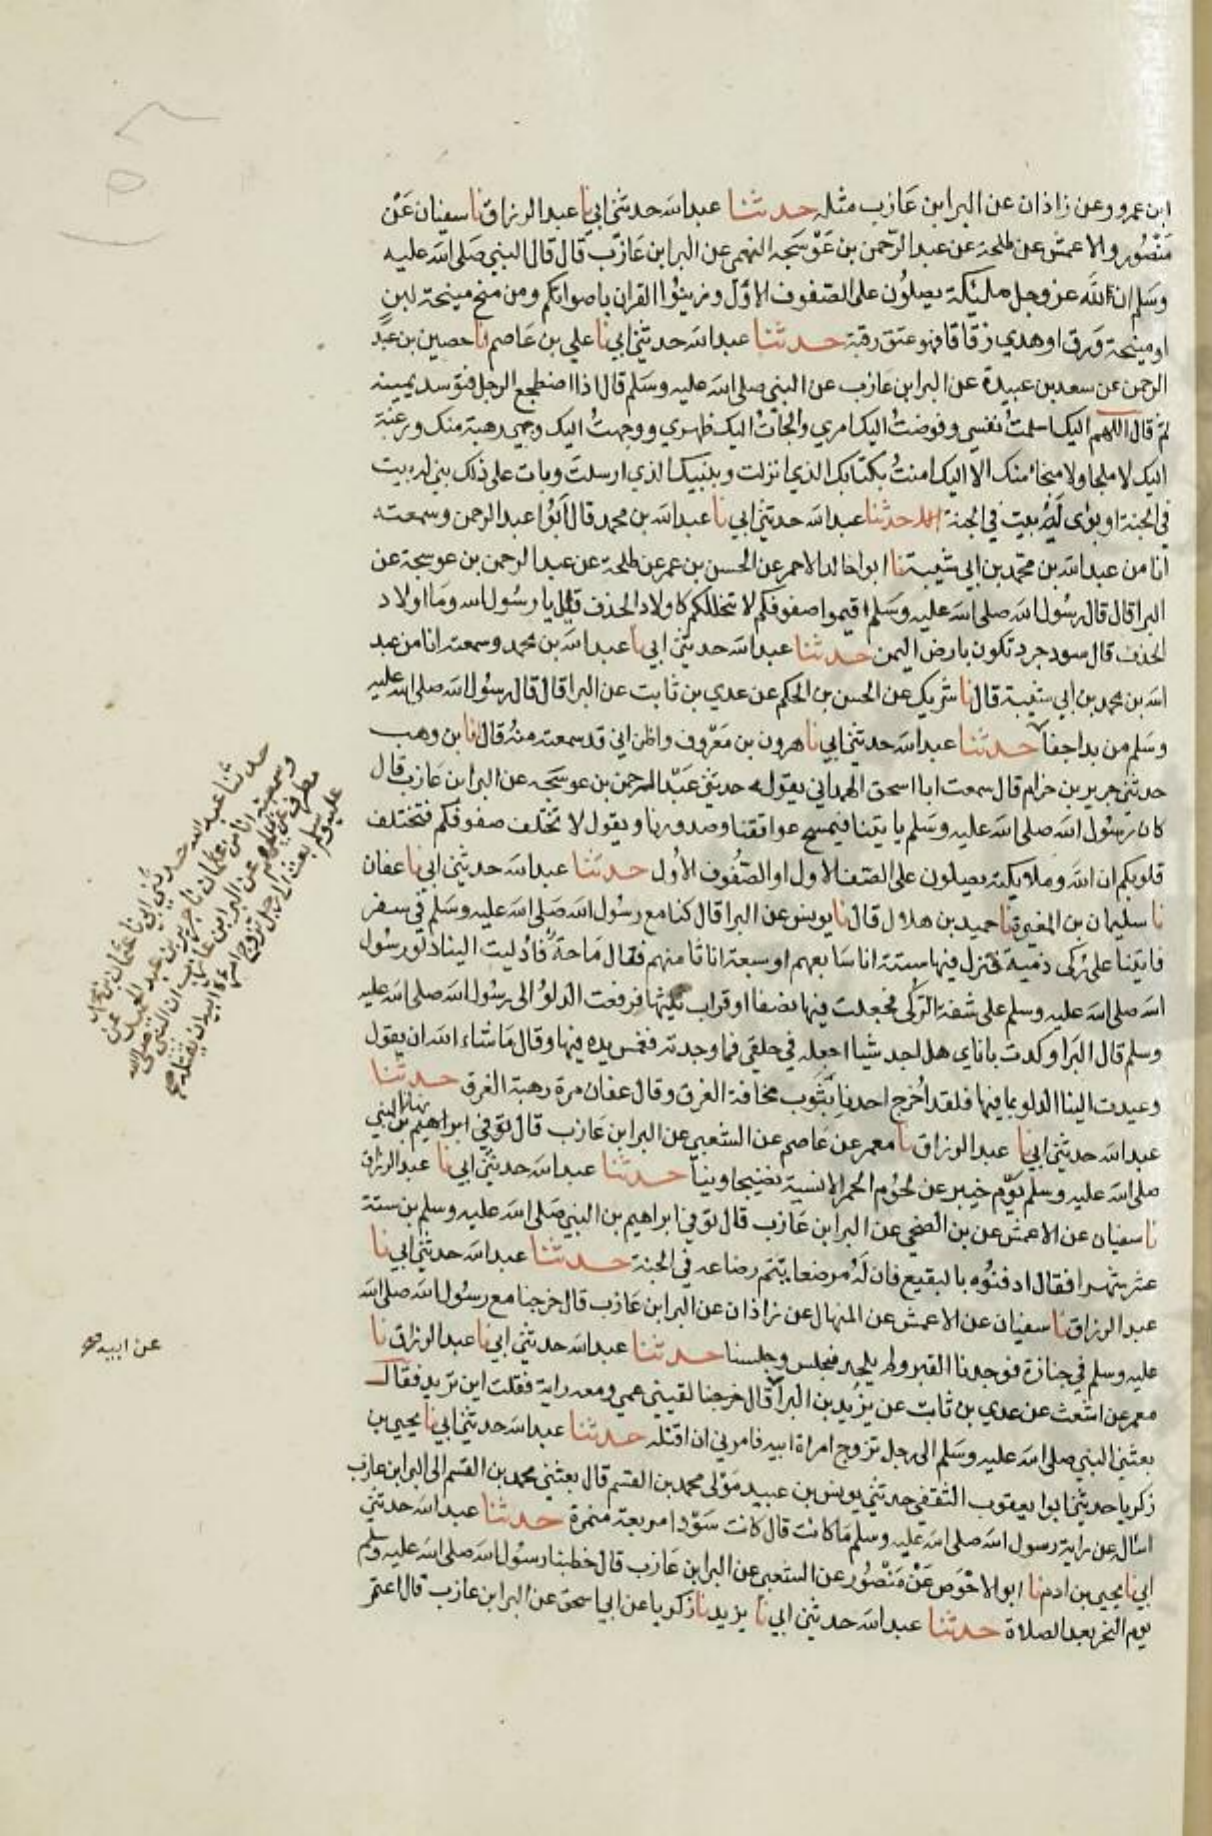 ابن عمرو وعن زاذان عن البرا بن عَازب مثله حدثنا عبدالله حدثني ابي نا عبدالرزاق نا سفيان عَن
مَنْصُور والاعمش عن طلحة عن عبدالرّحمن بن عَوْسَجه النهمي عن البرا بن عَازب قال قال النبي صَلى الله عليه
وسَلم ان اللّه عز وجل مليكته يصلوُن على الصّفوف الاوّل وزينوُا القران باصواتكم ومن منح مينحة لبنٍ
او مينحة وَرق او هدي زقاقا فهو عتق رقبة حدثنا عبدالله حدثني ابي نا علي بن عَاصم انا حصين بن عبد
الرحمن عن سعد بن عبيدة عن البرا بن عَازب عن النبي صلى الله عليه وسَلم قال اذا اضطجع الرجل فتوسد يمينه
ثم قال اللهم اليك اسلمتُ نفسي وفوضتُ اليك امري والجاتُ اليك ظهري ووجهتُ اليك وجهي رهبة منك ورغبة
اليك لا ملجا ولا منجا منك الا اليك امنتُ بكتابك الذي انزلت وبنبيك الذي ارسلت وبات على ذلك بني له بيت
في الجنة او بوى لَهُ بيت في الجنة حدثنا عبدالله حدثني ابي نا عبدالله بن محمد قال ابُوا عبدالرحمن وسمعته
انا من عبدالله بن محمّد بن ابي شيبة نا ابوا خالد الاحمر عن الحسن بن عمر عن طلحة عن عبدالرحمن بن عوسجة عن
البرا قال قال رسُول الله صلى الله عليه وسَلم اقيموا صفوفكم لا تخللكم كاولاد الحذف قيل يا رسُول الله وما اولاد
الحذف قال سود جرد تكون بارض اليمن حدثنا عبدالله حدثني ابي نا عبدالله بن محمد وسمعته انا من عبد
الله بن محمد بن ابي شيبة قال نا شريك عن الحسن بن الحكم عن عدي بن ثابت عن البرا قال قال رسُول الله صلى الله عليه
وسَلم من بدا جفا حدثنا عبدالله حدثني ابي نا هرون بن مَعْروف واظن اني قد سمعته منهُ قال انا بن وهب
حدثني جرير بن حزام قال سمعت ابا اسحق الهمداني يقول حدثني عَبْدالرحمن بن عوسجَه عن البرا بن عَازب قال
كان رسُول الله صلى الله عليه وسَلم ياتينا فيمسح عواتقنا وصدورنا ويقول لا تختلف صفوفكم فتختلف
قلوبكم ان الله وملايكته يصلون على الصّف الاول او الصّفُوف الاوُل حدثنا عبدالله حدثني ابي نا عفان
نا سليمان بن المغيرة نا حميد بن هلال قال نا يونس عن البرا قال كنا مع رسُول الله صَلى الله عليه وسَلم في سفر
فاتينا على رَكى ذمّة فنزل فيها ستة انا سَابعهم او سبعة انا ثامنهم فقال مَاحة فاُدليت الينا دلو ورسُول
الله صلى الله عليه وسلم على شفة الرّكى فجعلت فيها نصفا او قراب ثلثها فرفعت الدلوُ الى رسُول الله صلى الله عليه
وسلم قال البرا وكدت باناي هل اجد شيا اجعله في حلقي فما وجدته فغمس يده فيها وقال مَا شاء الله ان يقول
وعيدت الينا الدلو بما فيها فلقد اُخرج احدنا بثوب مخافة الغرق وقال عفان مرة رهبة الغرق حدثنا
عبدالله حدثني ابي نا عبدالرزاق نا معمر عن عَاصم عن الشعبي عن البرا بن عَازب قال توفي ابراهيم بن النبي
صلى الله عليه وسلم يوم خيبر عن لحوُم الحمر الانسية نضيجا ونيا حدثنا عبدالله حدثني ابي نا عبدالرزاق
نا سفيان عن الاعمش عن بن الضحي عن البرا بن عَازب قال توفي ابراهيم بن النبي صَلى الله عليه وسلم بن ستة
عشر شهرا فقال ادفنوُه بالبقيع فان لَهُ مرضعا يتم رضاعه في الجنة حدثنا عبدالله حدثني ابي نا
عبدالرزاق نا سفيان عن الاعمش عن المنهال عن زاذان عن البرا بن عَازب قال خرجنا مع رسُول الله صلى الله
عليه وسلم في جنازة فوجدنا القبر ولم يلحد فجلس وجلسنا حدثنا عبدالله حدثني ابي نا عبدالرزاق نا
معمر عن اشعث عن عدي بن ثابت عن يزيد بن البرا قال خرجنا لقيني عمي ومعه راية فقلت اين تريد فقال
بعثني النبي صلى الله عليه وسَلم الى رجل تزوج امراة ابيه فامرني ان اقتله حدثنا عبدالله حدثني ابي نا يحيى بن
زكريا حدثني ابوا يعقوب الثقفي حدثني يونس بن عبيد مَوْلى محمد بن القسم قال بعثني محمد بن القسم الى البرا بن عازب
اسال عن راية رسول الله صلى الله عليه وسلم مَا كانت قال كانت سَوْدا مربعة من نمرة حدثنا عبدالله حدثني
ابي نا يحيى بن ادم نا ابوا لاحْوَص عَنْ مَنْصُور عن الشعبي عن البرا بن عَازب قال خطبنا رسُول الله صلى الله عليه وسلم
يوم النحر بعد الصلاة حدثنا عبدالله حدثني ابي نا يزيد نا زكريا عن ابي اسحق عن البرا بن عازب قال اعتمر
حدثنا عبدالله حدثني ابي نا عثمان بن محمد
وسمعته انا من عثمان نا جرير بن عبدالحميد عن
مطرف عن عن البرا بن عازب ان النبي صلى الله
عليه وسلم بعث الى رجل تزوج امراة ابيه ان يقتله صح
عن ابيه صح